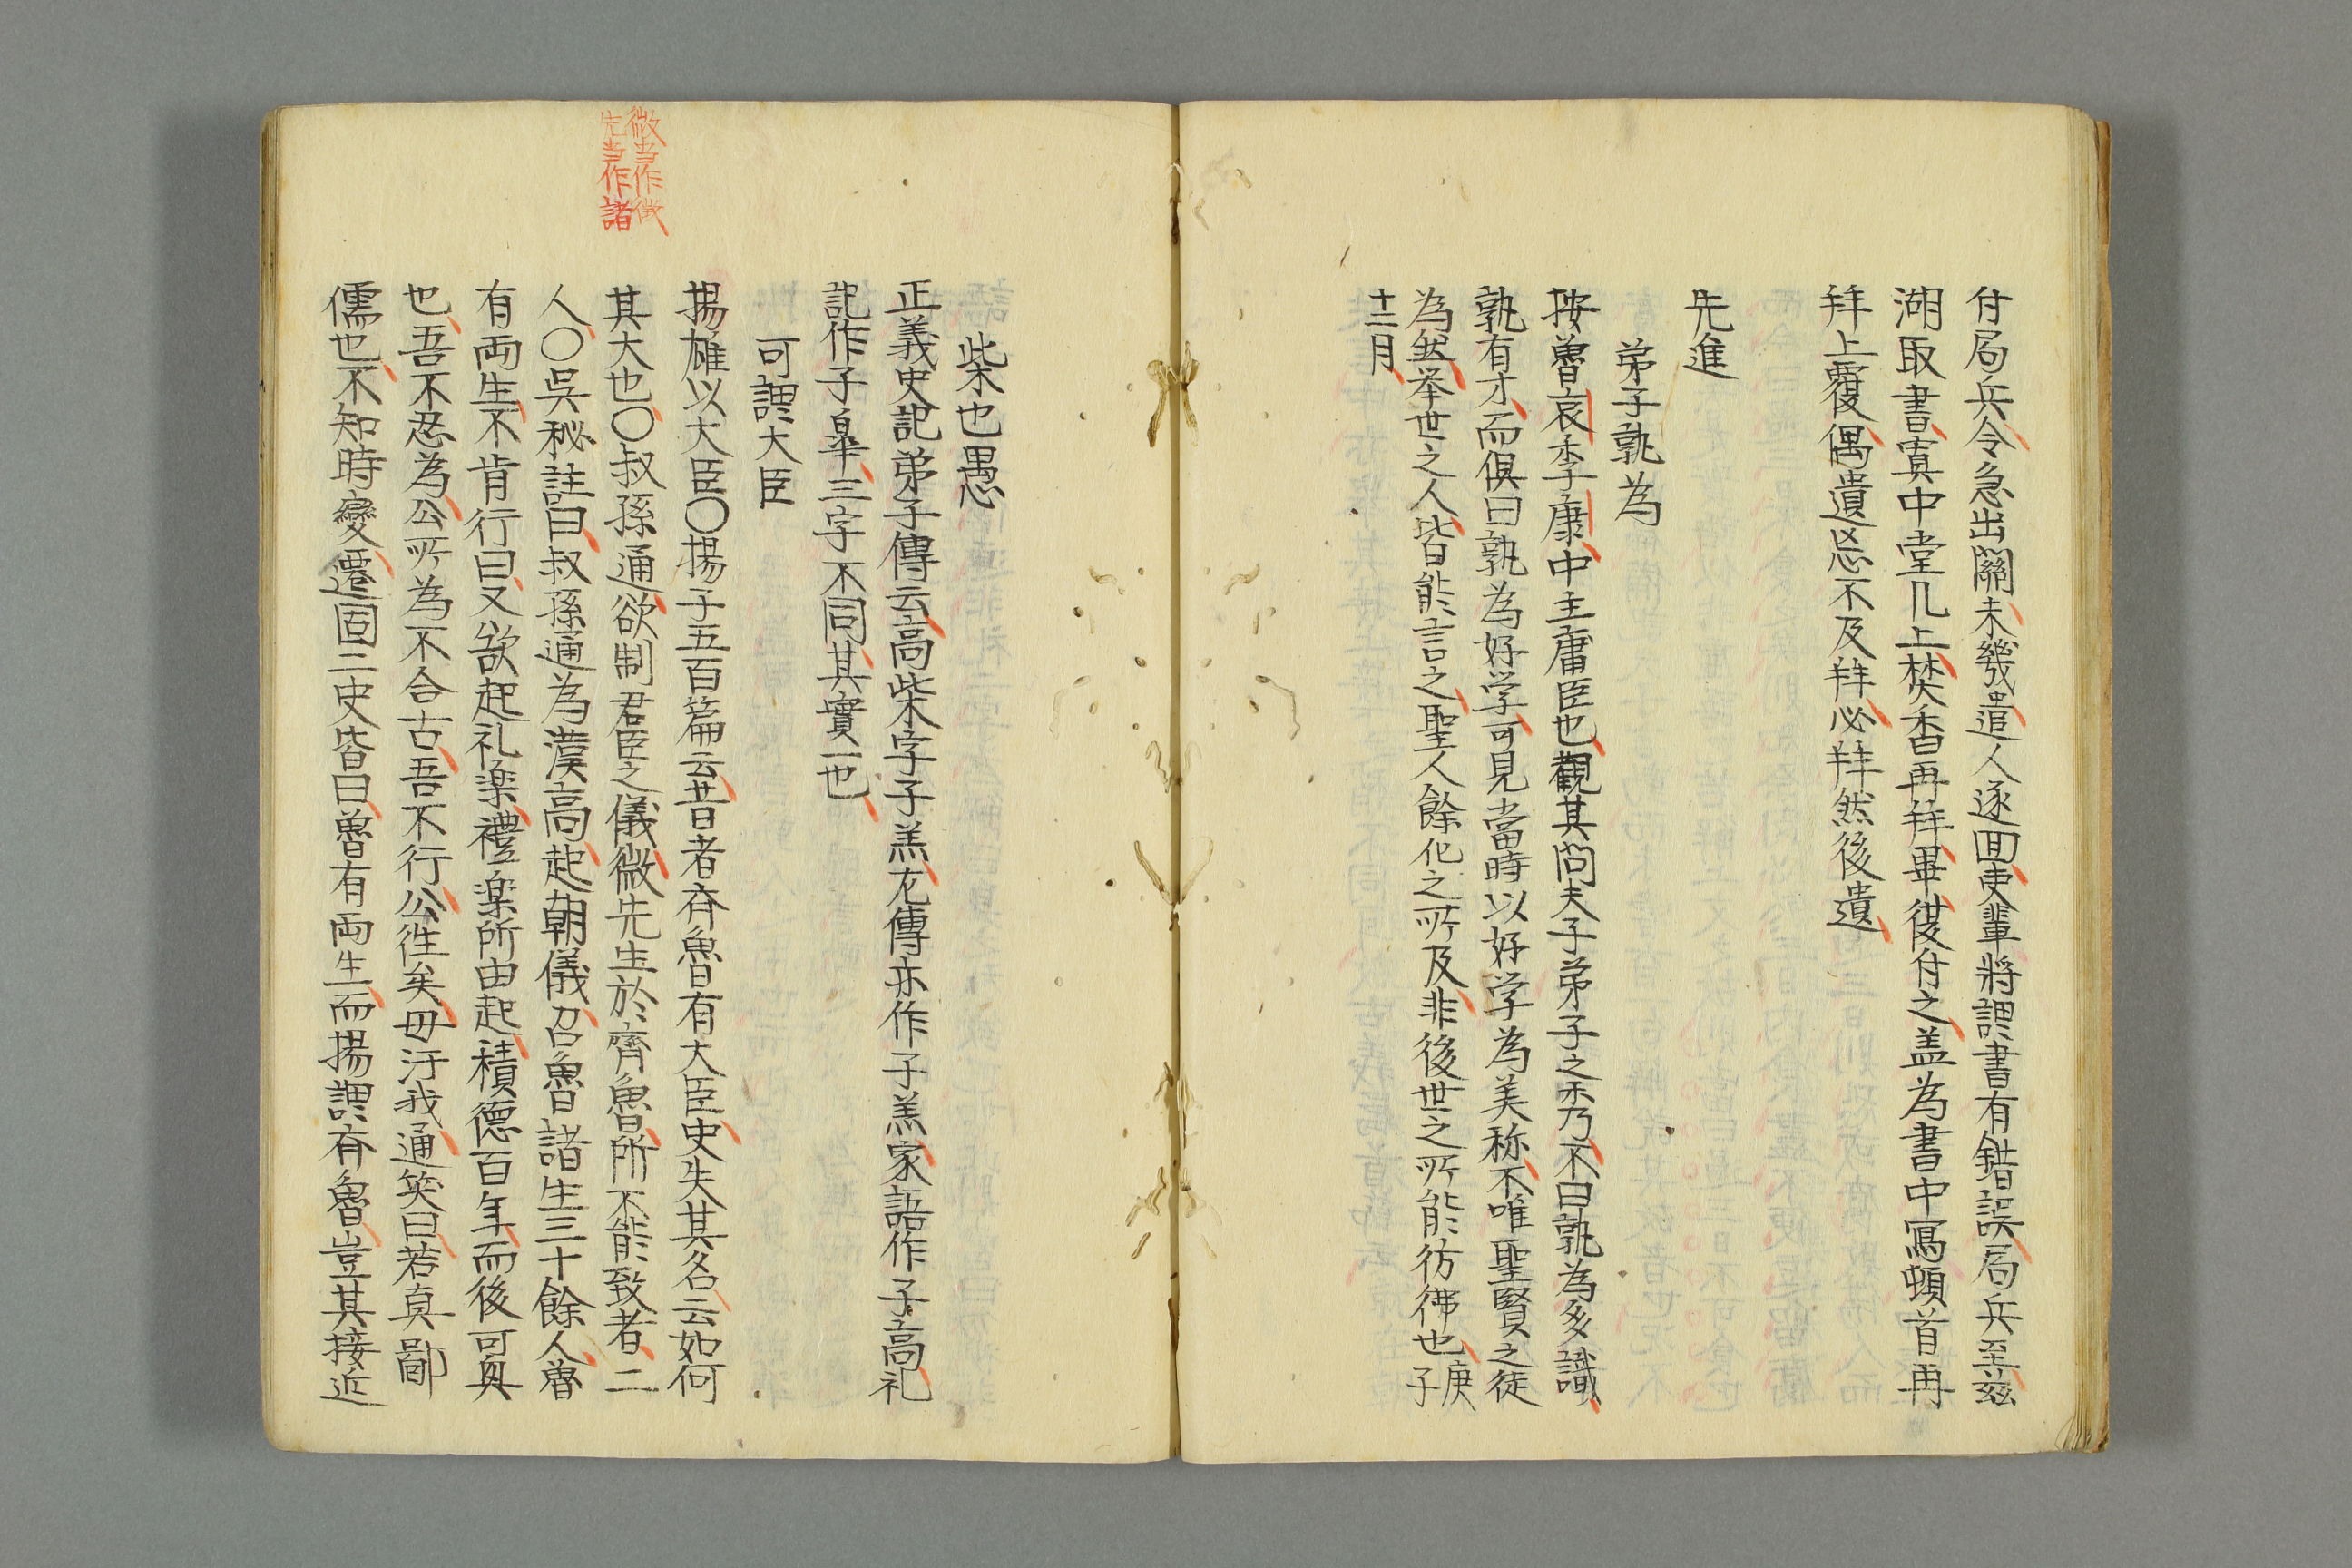 付局兵令急出關未幾遣人逐囬吏輩將謂書有錯誤局兵至茲
湖取書寘中堂几上焚香再拜畢復付之盖為書中寫頓首再
拜上覆偶遺忘不及拜必拜然後遺
先進
弟子孰為
按魯哀季康中主庸臣也觀其問夫子弟子之秀乃不曰孰為多識
孰有才而俱曰孰為好学可見當時以好学為美称不唯聖賢之徒
為然举世之人皆能言之聖人餘化之所及非後世之所能彷彿也庚子
十二月
柴也愚
正義史記弟子傳云高柴字子羔左傳亦作子羔家語作子高礼
記作子皐三字不同其實一也
可謂大臣
揚雄以大臣〇揚子五百篇云昔者斉魯有大臣史失其名云如何
其大也〇叔孫通欲制君臣之儀微先生於齊魯所不能致者二
人〇吳秘註曰叔孫通為漢高起朝儀召魯諸生三十餘人魯
有両生不肯行曰又欲起礼楽禮楽所由起積德百年而後可興
也吾不忍為公所為不合古吾不行公徃矣毋汙我通笑曰若真鄙
儒也不知時變遷固二史皆曰魯有両生而揚謂斉魯豈其接近
微当作徴
先当作諸